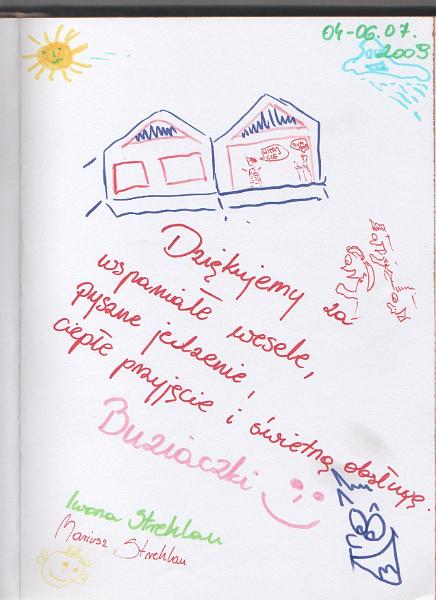 04-06.07.
2009
WITAJ
CIE
Dziękujemy za
wspaniałe wesele,
pyszne jedzenie,
ciepłe przyjęcie i świetną obsługę.
Buziaczki
Iwona Strehlau
Mariusz Strehlau